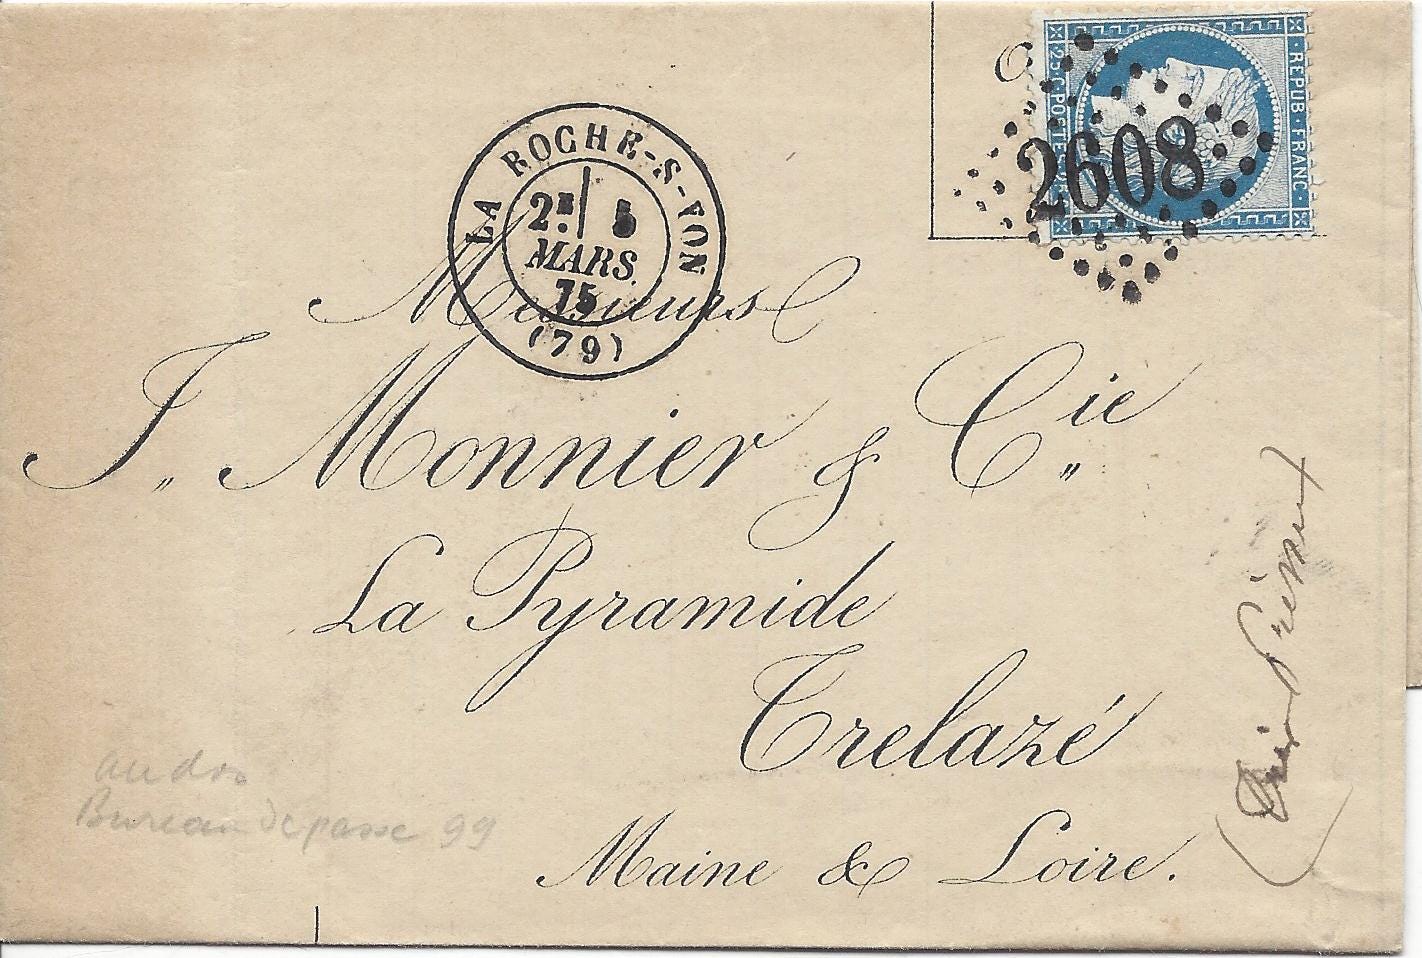 REPUB · FRANC ·
25 C POSTE
2608
LA ROCHE-S-YON
2E 5
MARS
75
(79)
Messieurs
J. Monnier & Cie
La Pyramide
Trelazé
Maine & Loire.
au dos
Bureau de passe 99